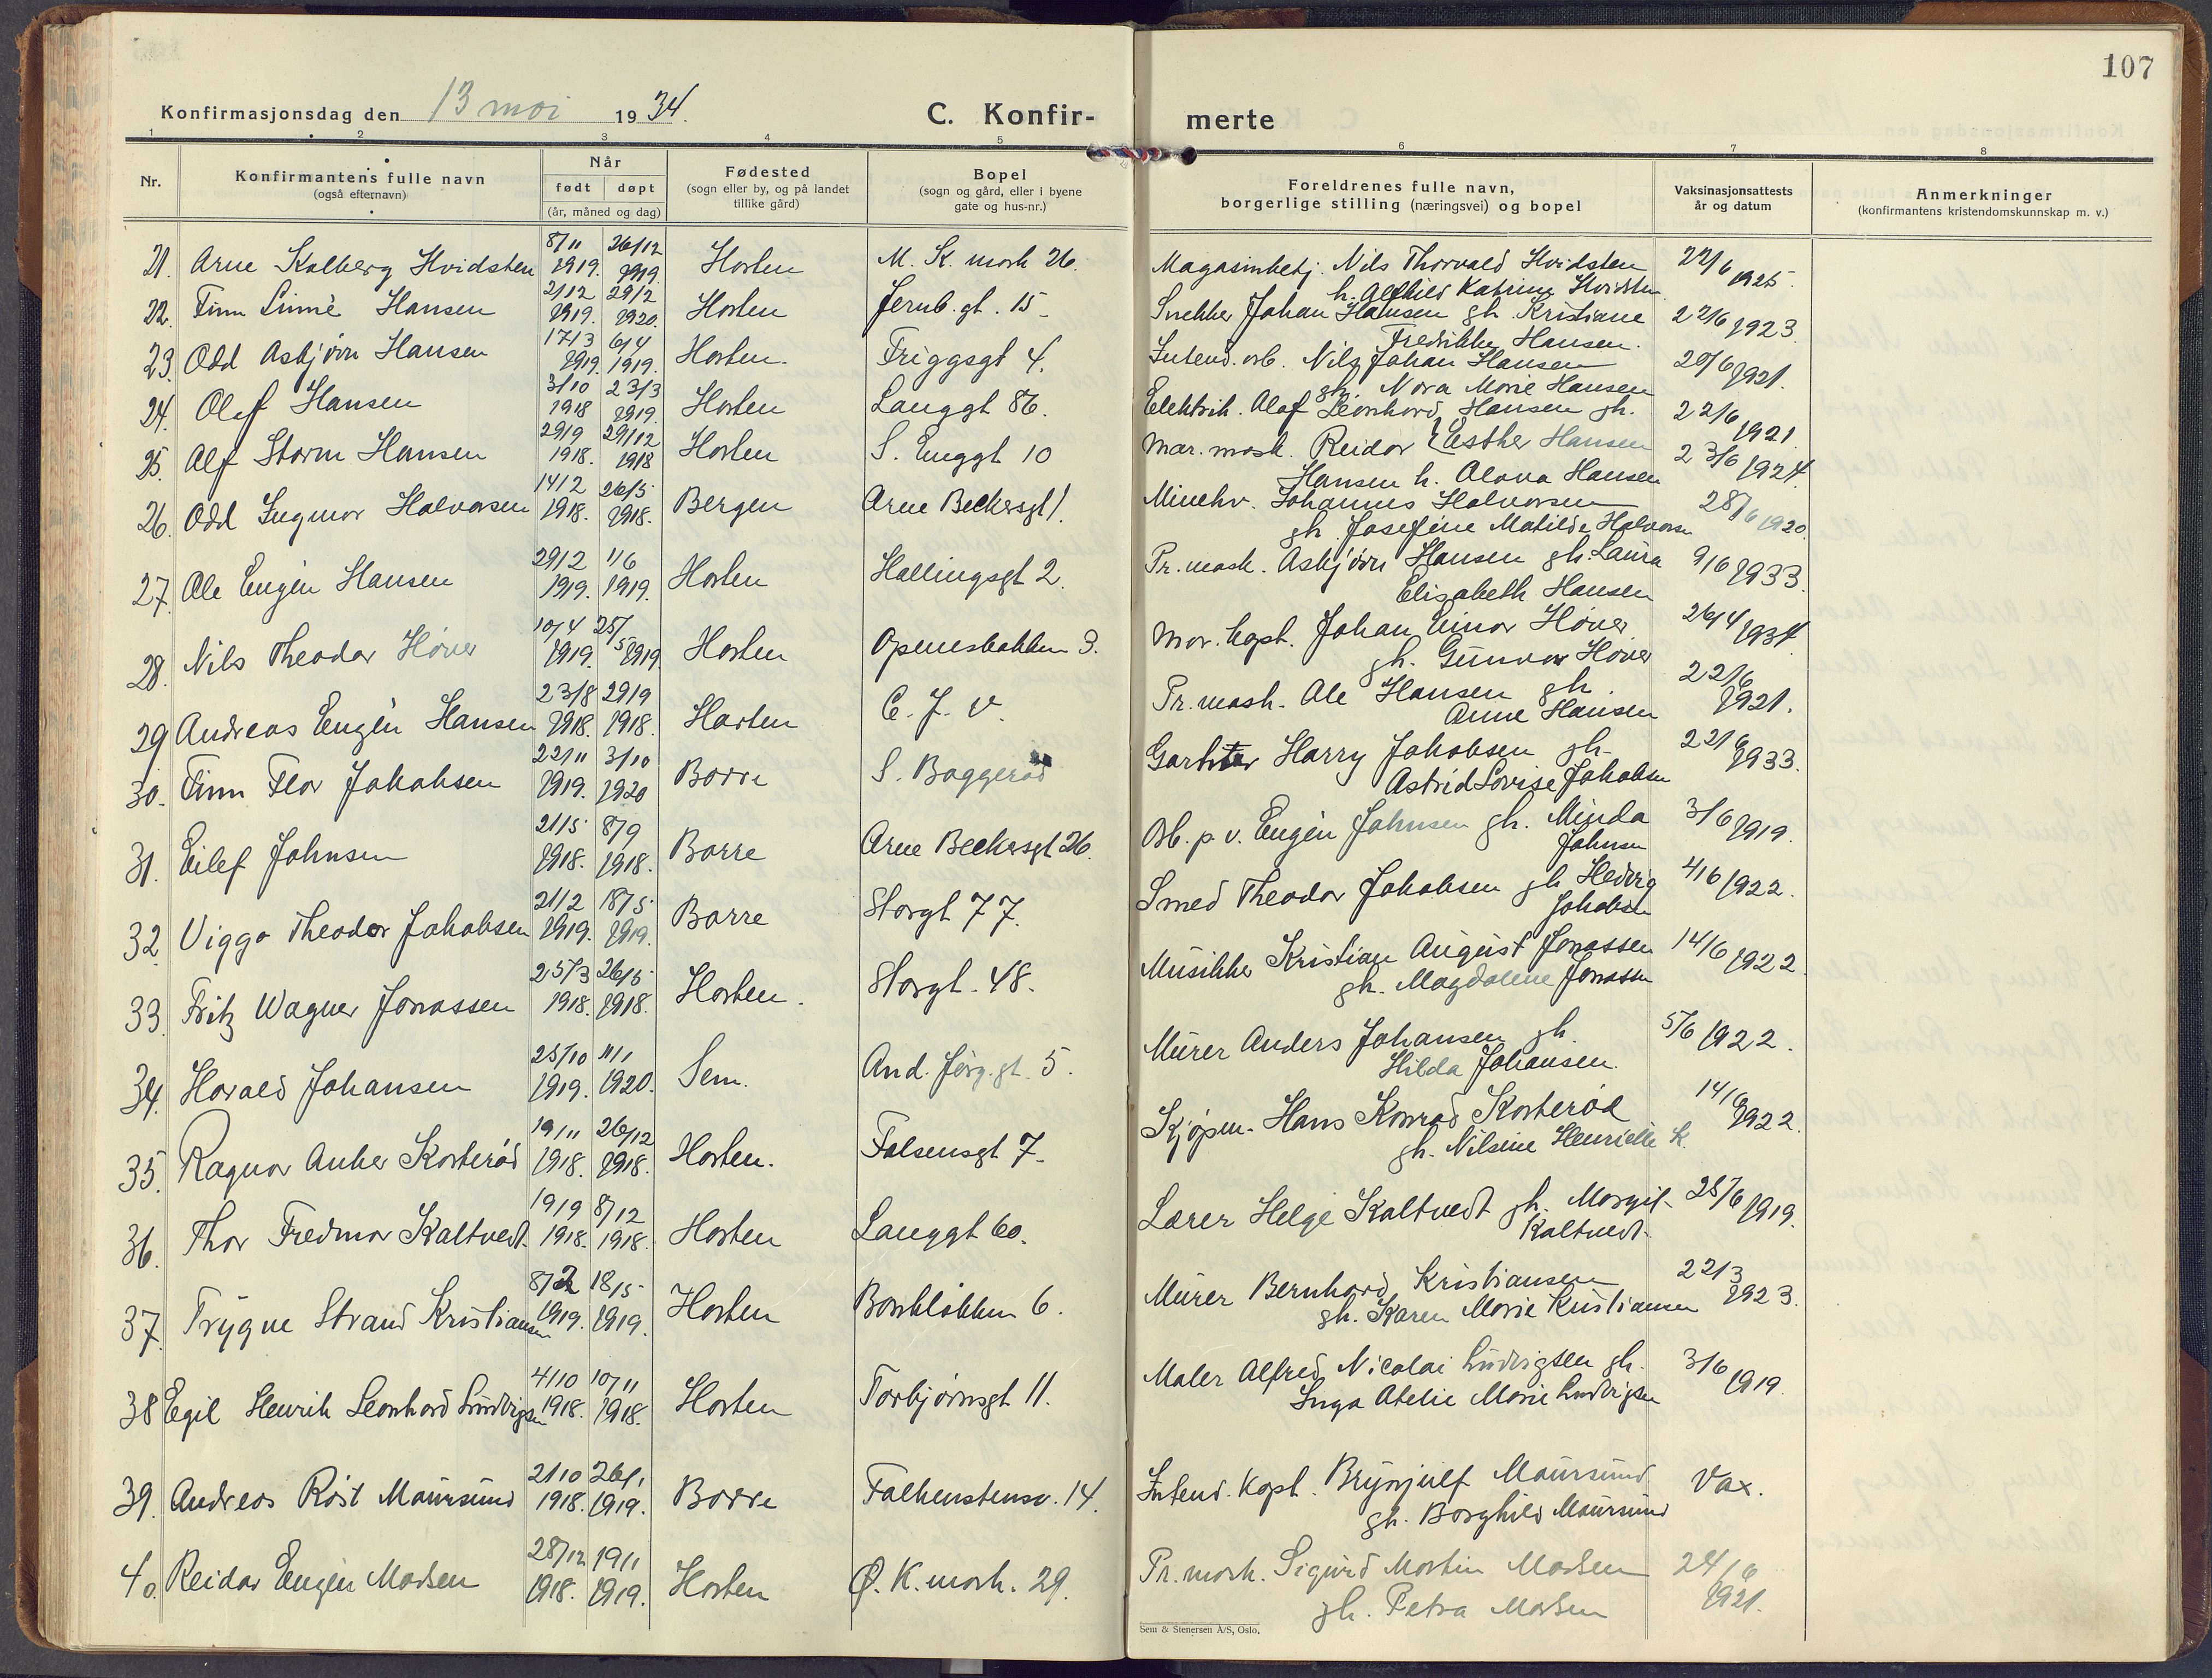 107
Konfirmasjonsdag den 13 mai 1934.
C. Konfir-merte
1 2 3 4 5 6 7 8
Nr.
Konfirmantens fulle navn
(også efternavn)
Når
født døpt
(år, måned og dag)
Fødested
(sogn eller by, og på landet
tillike gård)
Bopel
(sogn og gård, eller i byene
gate og hus-nr.)
Foreldrenes fulle navn,
borgerlige stilling (næringsvei) og bopel
Vaksinasjonsattests
år og datum
Anmerkninger
(konfirmantens kristendomskunnskap m. v.)
21. Arne Kalberg Hvidsten 8/11 1919. 26/12 1919. Horten M. K. mark 26. Magasinbetj. Nils Thorvald Hvidsten 22/6 1925.
h. Katrine Hvidsten
22. Finn Linné Hansen 2/12 1919. 29/2 1920. Horten Jernb. gt. 15. Snekker Johan Hansen gh. Kristiane 22/6 1923.
Fredrikke Hansen.
23. Odd Asbjørn Hansen 17/3 1919. 6/4 1919. Horten. Friggsgt 4. Intend. arb. Nils Johan Hansen 20/6 1921.
gh. Nora Marie Hansen
24. Olaf Hansen 3/10 1918 23/3 1919. Horten Langgt 86. Elektrik. Olaf Leonhard Hansen gh. 22/6 1921.
Esther Hansen
25. Alf Storm Hansen 29/9 1918. 29/12 1918 Horten S. Enggt 10 Mar. mask. Reidar 23/6 1924.
Hansen h. Hansen
26. Odd Ingmar Halvorsen 14/2 1918. 26/5 1918. Bergen Arne Beckersgt 1. Minehv. Johannes Halvorsen 28/6 1920.
gh. Josefine Matilde Halvorsen
27. Ole Eugen Hansen 29/2 1919. 1/6 1919. Horten Hallingsgt 2. Pr. mask. Asbjørn Hansen gh. Laura 9/6 1933.
Elisabeth Hansen
28. Nils Theodor Høver 10/4 1919. 25/5 1919 Horten Apenesbakken 3. Mar. kapt. Johan Einar Høver 26/4 1934.
gh. Gunvor Høver
29 Andreas Eugén Hansen 23/8 1918. 29/9 1918. Horten C. J. V. Pr. mask. Ole Hansen gh. 22/6 1921.
Anne Hansen
30. Finn Flor Jakobsen 22/11 1919. 3/10 1920 Borre S. Baggerød Gartner Harry Jakobsen gh. 22/6 1933.
Astrid Lovise Jakobsen
31. Eilef Johnsen 21/5 1918. 8/9 1918. Borre Arne Beckersgt 26. Arb. p. v. Eugén Johnsen gh. Minda 3/6 1919.
Johnsen
32. Viggo Theodor Jakobsen 21/2 1919. 18/5 1919. Borre Storgt 77. Smed Theodor Jakobsen gh. Hedvig 4/6 1922.
Jakobsen
33. Fritz Wagner Jonassen 25/3 1918. 26/5 1918. Horten. Storgt. 48. Musikker Kristian August Jonassen 14/6 1922.
gh. Magdalene Jonassen
34. Harald Johansen 25/10 1919. 11/1 1920. Sem. And. Jørg. gt. 5. Murer Anders Johansen gh. 5/6 1922.
Hilda Johansen.
35. Ragnar Anker Korterød 19/11 1918. 26/12 1918. Horten. Falsensgt 7. Kjøpm. Hans Konrad Korterød 14/6 1922.
gh. Nilsine Henriette K.
36. Thor Fredmar Kaltvedt 19/9 1918. 8/12 1918. Horten Langgt 60. Lærer Helge Kaltvedt gh. Margit 28/6 1919.
Kaltvedt.
37. Trygve Strand Kristiansen 8/2 1919. 18/5 1919. Horten Borkløkken 6. Murer Bernhard Kristiansen 22/3 1923.
gh. Karen Marie Kristiansen
38 Egil Henrik Leonhard Ludvigsen 4/10 1918. 10/11 1918. Horten Torbjørnsgt 11. Maler Alfred Nicolai Ludvigsen gh. 3/6 1919.
Inga Atelie Marie Ludvigsen
39. Andreas Röst Maursund 21/10 1918. 26/1 1919. Borre Falkenstensv. 14. Intend. kapt. Brynjulf Maursund Vax.
gh. Borghild Maursund
40. Reidar Eugén Madsen 28/12 1918. 19/1 1919. Horten Ø. K. mark. 29. Pr. mask. Sigurd Martin Madsen 24/6 1921.
gh. Petra Madsen
Sem & Stenersen A/S, Oslo.